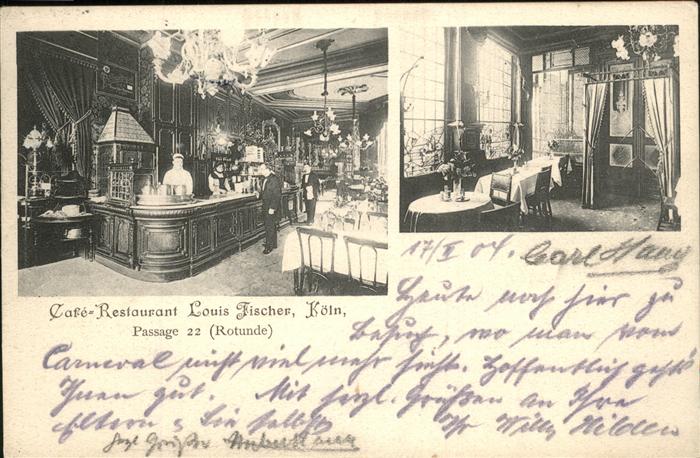 Café-Restaurant Louis Fischer, Köln,
Passage 22 (Rotunde)
17/II 04. Carl Haug
Heute noch hier zu
Besuch, wo man vom
Carneval nicht viel mehr sieht. Hoffentlich geht's
Ihnen gut. Mit herzl. Grüßen an Ihre
Eltern & Sie selbst
Ihr Willy Hilden
herzl Grüße